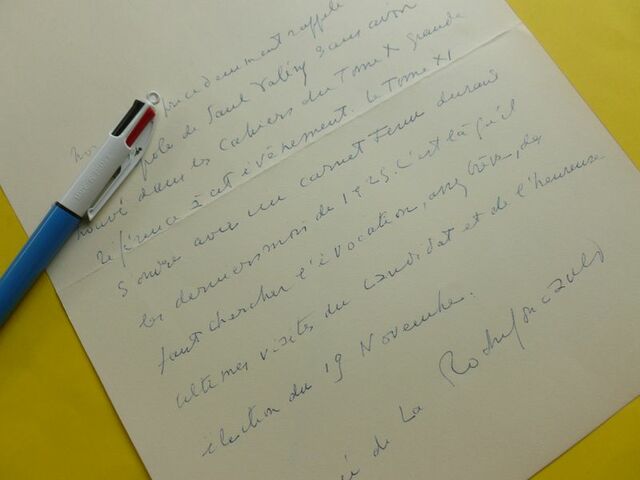 précédemment rappelé
de Paul Valéry sans avoir
trouvé dans les Cahiers du Tome X grande
référence à cet évènement. Le Tome XI
s'ouvre avec un carnet tenu durant
les derniers mois de 1925. C'est là qu'il
faut chercher l'évocation, assez brève, des
ultimes visites du candidat et de l'heureuse
élection du 19 Novembre.
de La Rochefoucauld